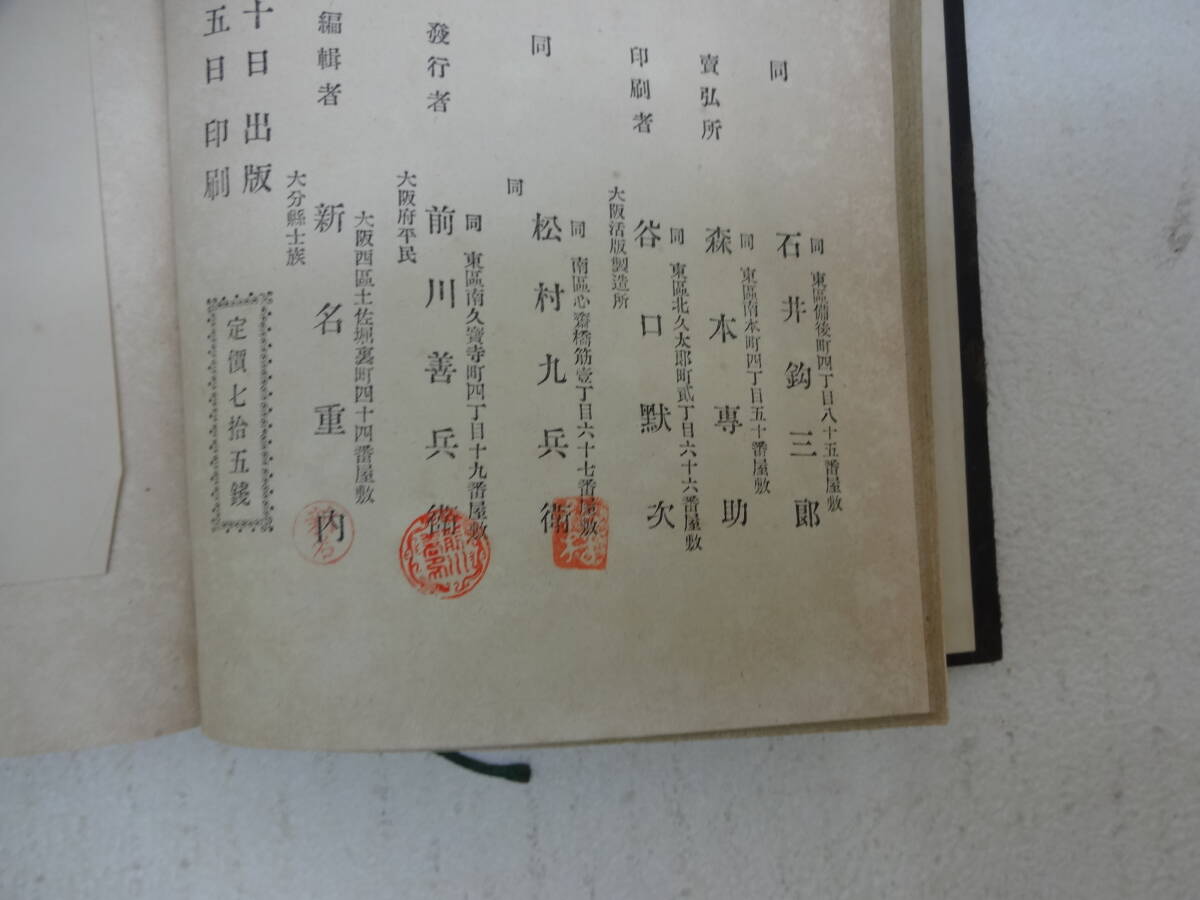 五日印刷
十日出版
定價七拾五錢
編輯者
大分縣士族
新名重内
大阪西區土佐堀裏町四十四番屋敷
發行者
大阪府平民
前川善兵衛
同 東區南久寶寺町四丁目十九番屋敷
同
同
松村九兵衛
同 南區心齋橋筋壹丁目六十七番屋敷
印刷者
大阪活版製造所
谷口默次
同 東區北久太郎町貳丁目六十六番屋敷
賣弘所
森本專助
同 東區南本町四丁目五十番屋敷
同
石井鈎三郎
同 東區備後町四丁目八十五番屋敷